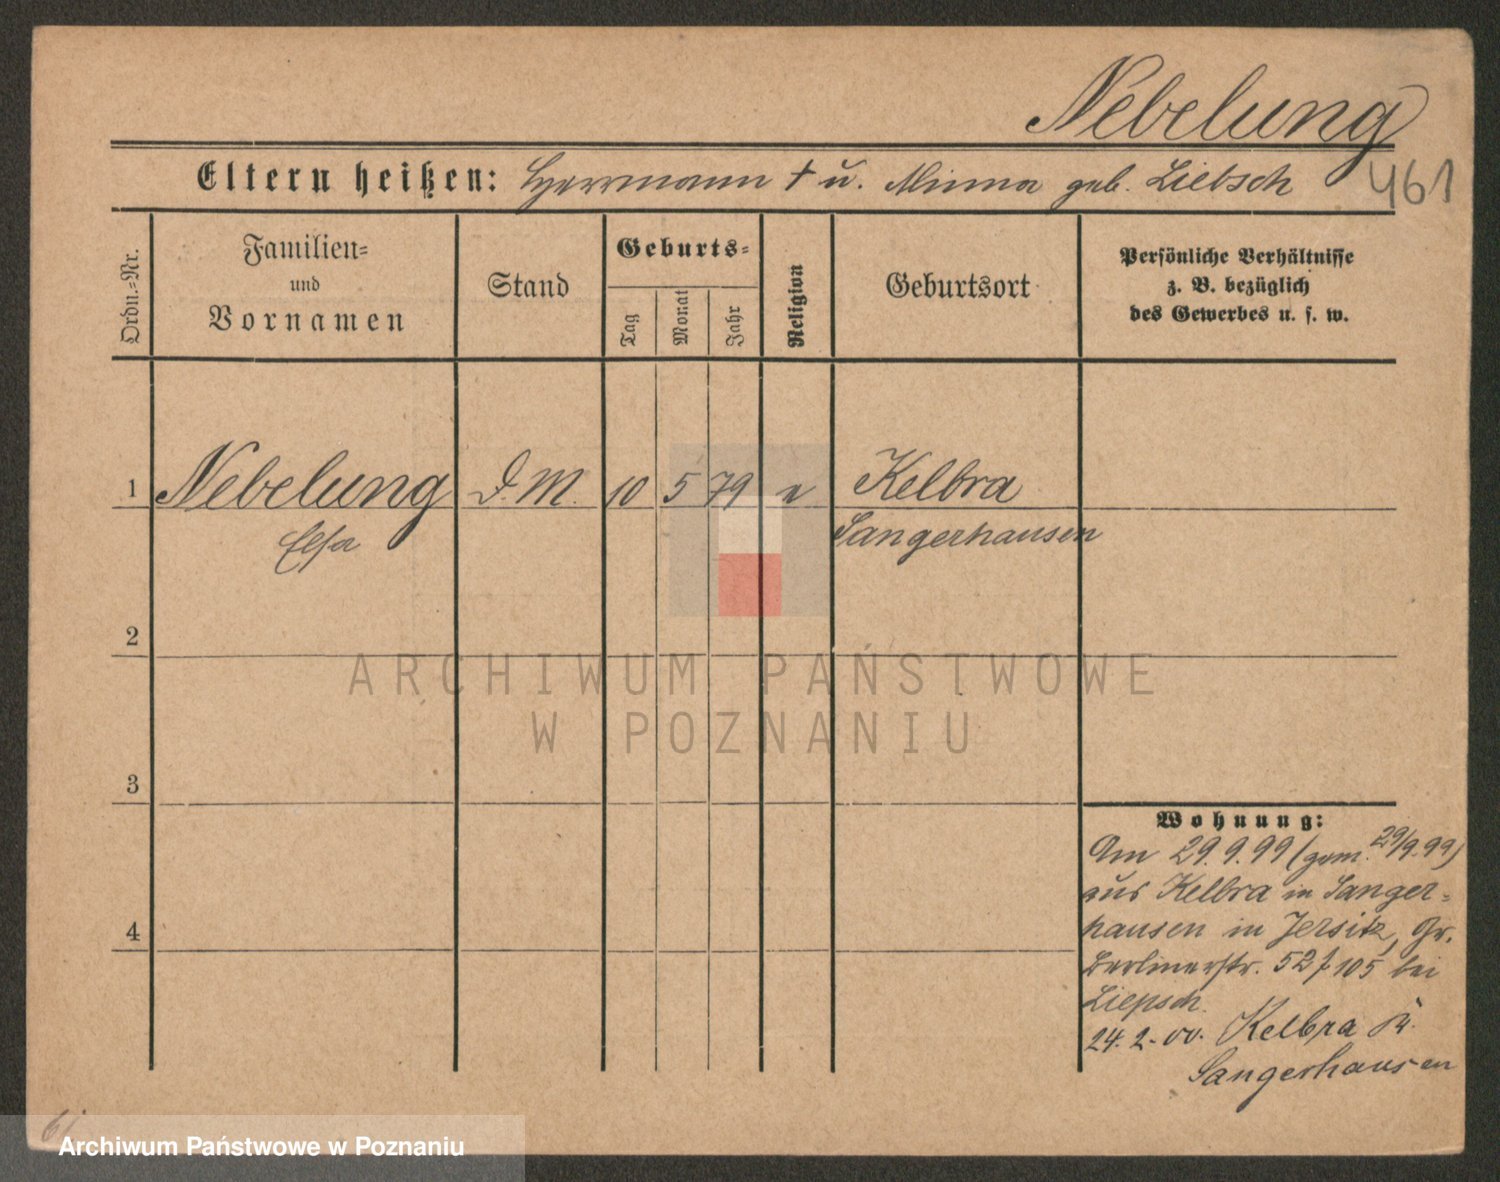 Nebelung
Eltern heißen: Herrmann † u. Minna geb. Liebsch
461
Ordn.-Nr.
Familien-
und
Vornamen
Stand
Geburts-
Tag
Monat
Jahr
Religion
Geburtsort
Persönliche Verhältnisse
z. B. bezüglich
des Gewerbes u. s. w.
1 Nebelung D.M. 10 5 79 Kelbra
Elsa Sangerhausen
2
3
4
Wohnung:
Am 29.9.99 (gem. 29/9.99)
aus Kelbra in Sanger-
hausen in Jersitz, Gr.
Berlinerstr. 52 f. 105 bei
Liepsch.
24.2.00. Kelbra
Sangerhausen
ARCHIWUM PAŃSTWOWE
W POZNANIU
Archiwum Państwowe w Poznaniu